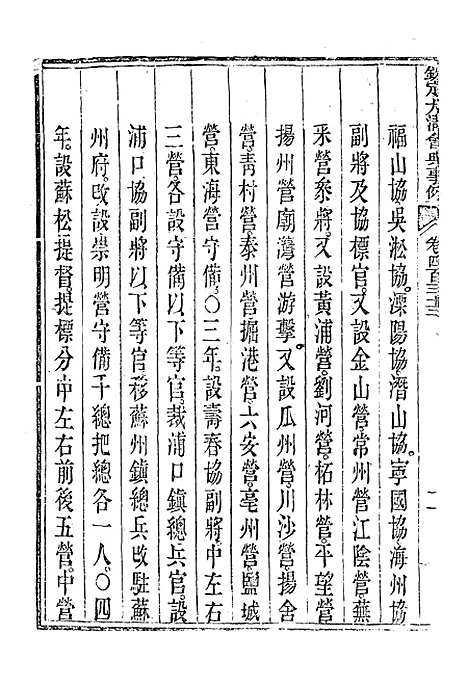 欽定大清會典事例 卷四百三十三
福山協。吳淞協。溧陽協。潛山協。寧國協。海州協
副將及協標官。又設金山營。常州營。江陰營。蕪
采營參將。又設黃浦營。劉河營。柘林營。平望營
揚州營。廟灣營游擊。又設瓜州營。川沙營。揚舍
營。青村營。泰州營。掘港營。六安營。亳州營。鹽城
營。東海營守備。○三年。設壽春協副將。中左右
三營。各設守備以下等官。裁浦口鎮總兵官。設
浦口協副將以下等官。移蘇州鎮總兵改駐蘇
州府。改設崇明營守備千總把總各一人。○四
年。設蘇松提督。提標分中左右前後五營。中營